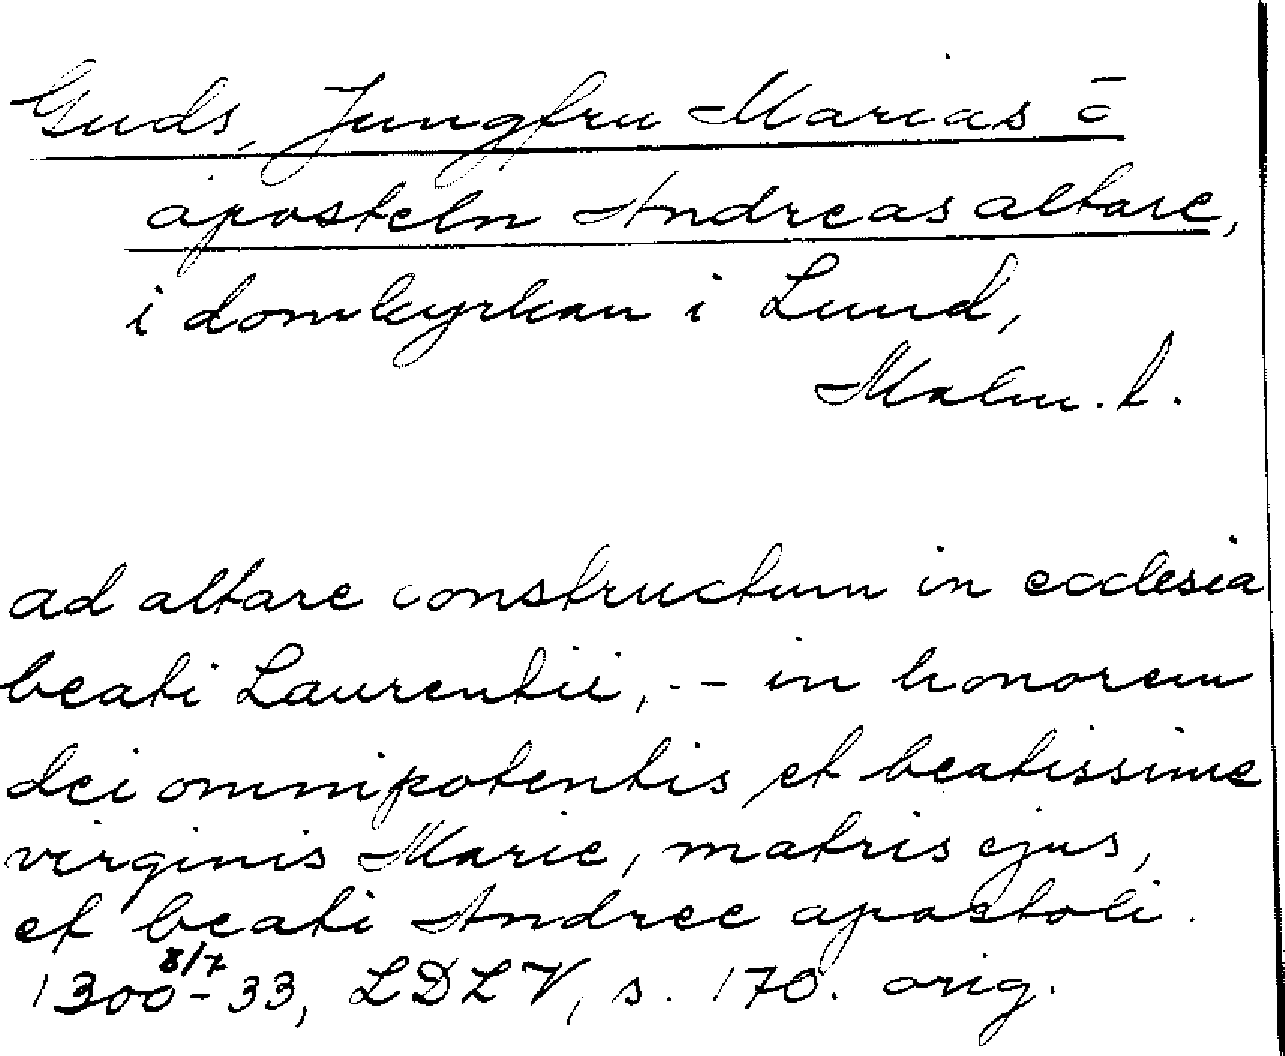 Guds, Jungfru Marias o
aposteln Andreas altare,
i domkyrkan i Lund,
Malm. l.
ad altare constructum in ecclesia
beati Laurentii, -- in honorem
dei omnipotentis et beatissime
virginis Marie, matris ejus,
et beati Andree apostoli.
1300 8/7 - 33, LDLV, s. 170. orig.